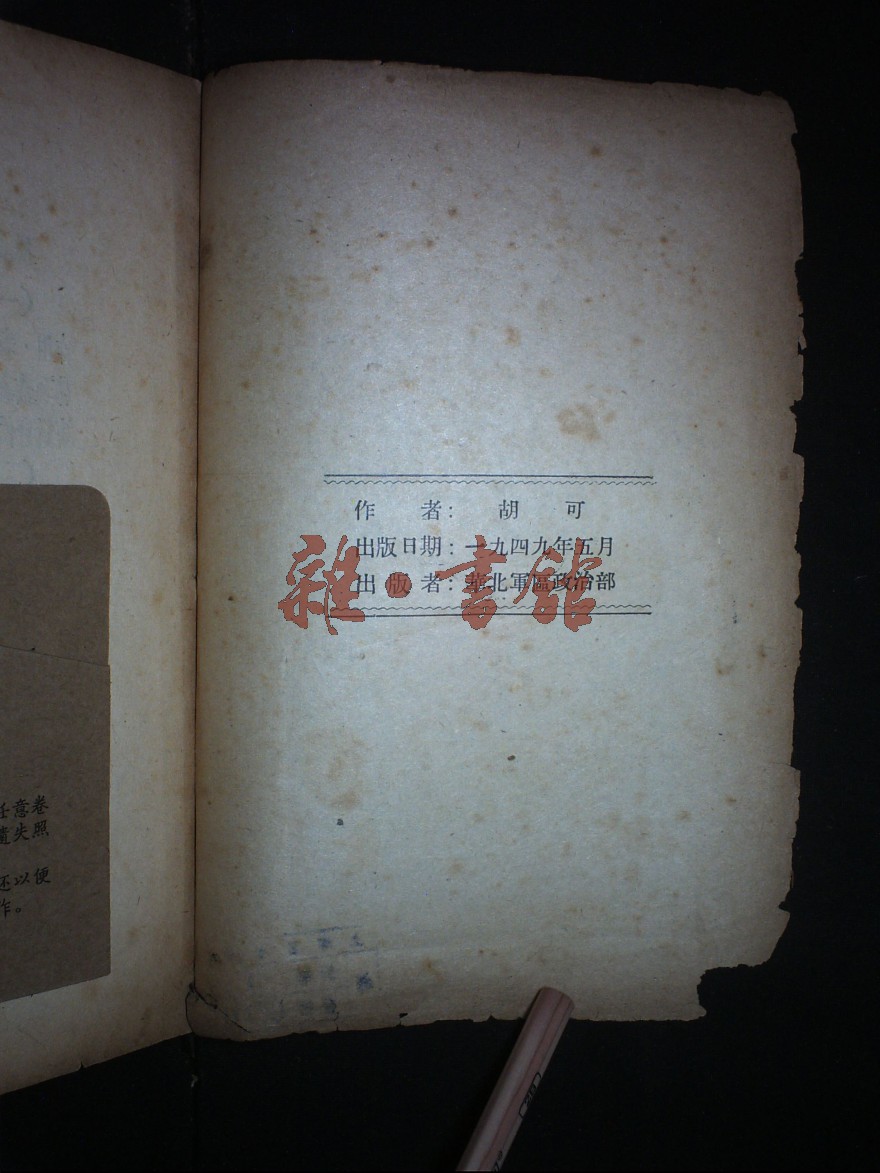 作 者： 胡 可
出版日期：一九四九年五月
出 版 者：華北軍區政治部
雜·書館
任意卷
遺失照
还以便
作。